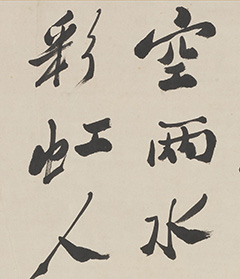 空兩水
彩虹人